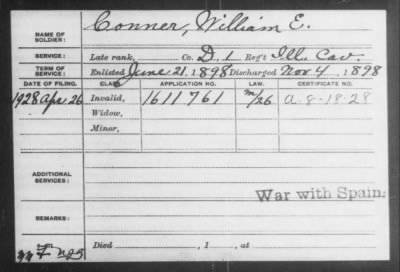 NAME OF SOLDIER: Conner, William E.
SERVICE: Late rank, Co. D. 1 Reg't Ill. Cav.
TERM OF SERVICE: Enlisted June 21, 1898 Discharged Nov 4, 1898
DATE OF FILING. CLASS. APPLICATION NO. LAW. CERTIFICATE NO.
1928 Apr. 26 Invalid, 1611761 m/26 A-8-18-28
Widow,
Minor,
ADDITIONAL SERVICES:
War with Spain.
REMARKS:
Died , 1 , at